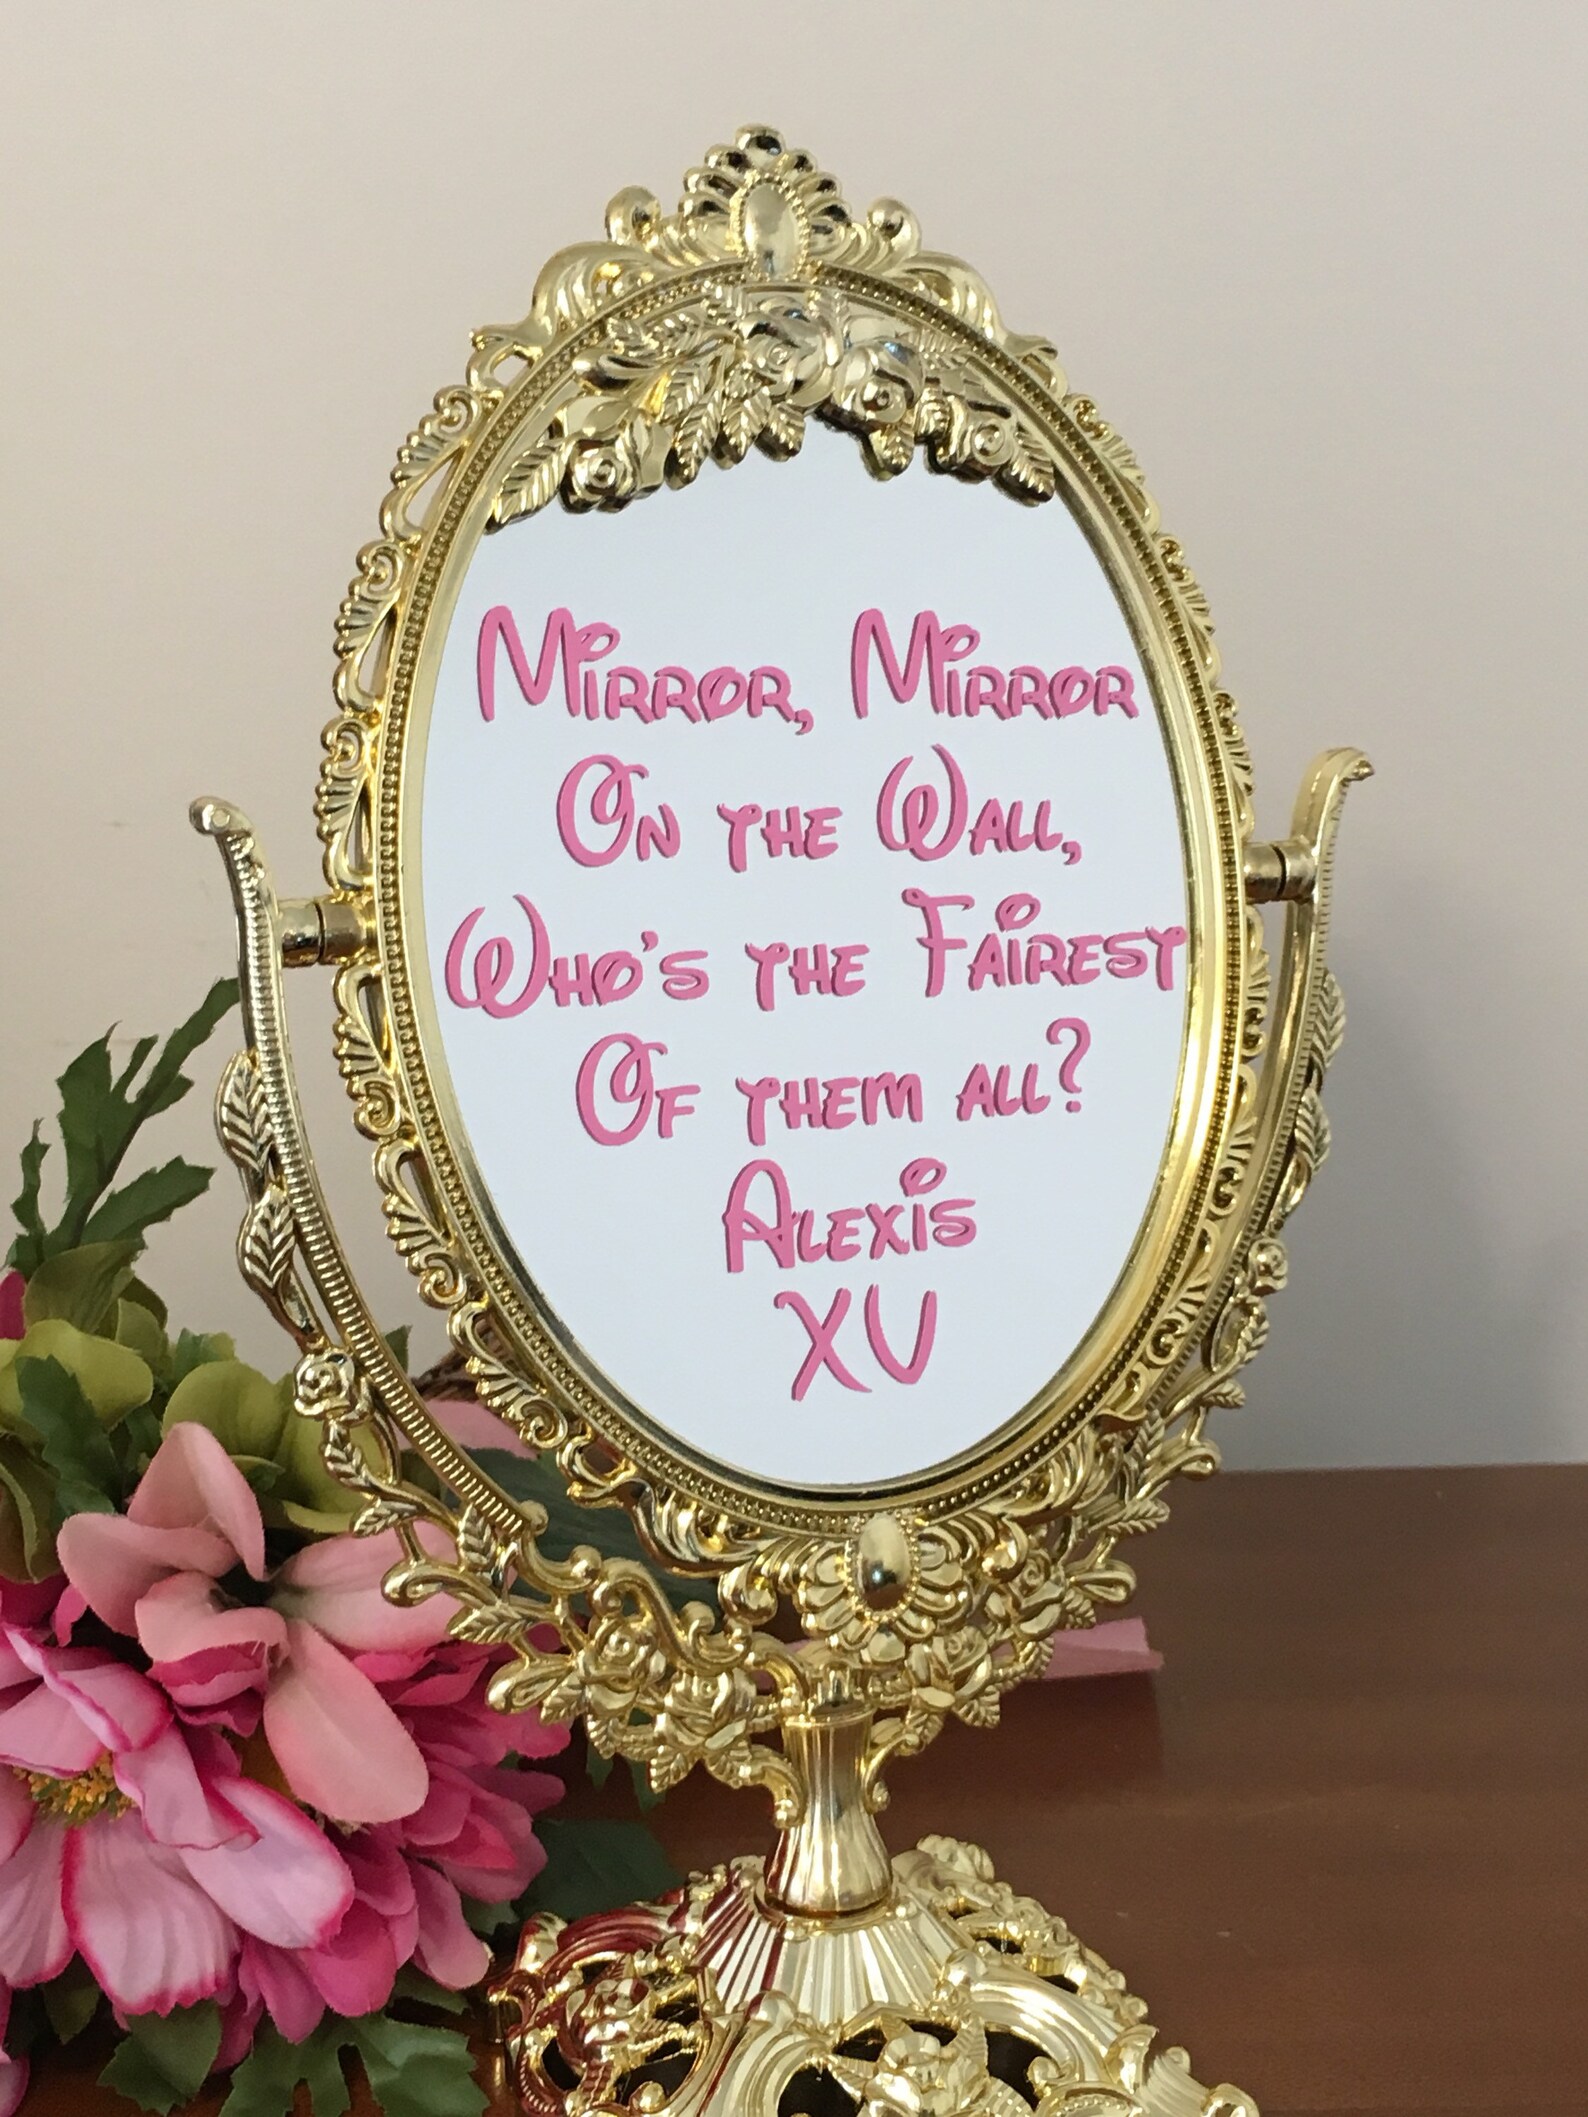 Mirror, Mirror
On the Wall,
Who's the Fairest
Of them all?
Alexis
XV